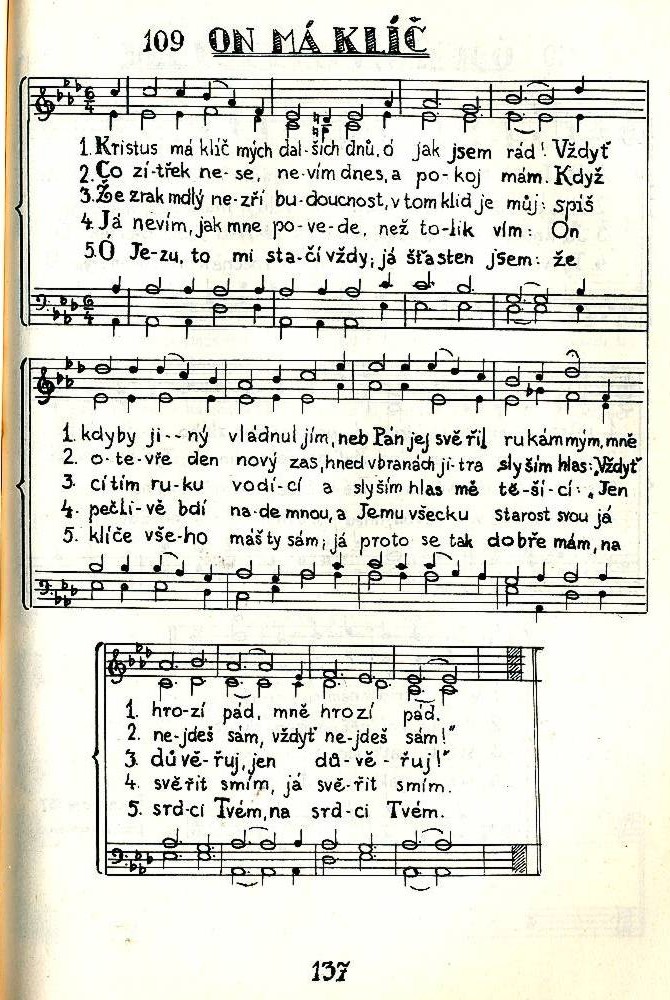 109 ON MÁ KLÍČ
1. Kristus má klíč mých dal-ších dnů, ó jak jsem rád! Vždyť
2. Co zí-třek ne-se, ne-vím dnes, a po-koj mám. Když
3. Že zrak mdlý ne-zří bu-doucnost, v tom klid je můj: spíš
4. Já nevím, jak mne po-ve-de, než to-lik vím: On
5. Ó Je-zu, to mi sta-čí vždy; já šťasten jsem: že
1. kdyby ji--ný vládnul jím, neb Pán jej svě řil rukám mým, mně
2. o-te-vře den nový zas, hned v branách ji-tra slyším hlas: „Vždyť
3. cítím ru-ku vodí-cí a slyším hlas mě tě-ší-cí: „Jen
4. pečli-vě bdí na-de mnou, a Jemu všecku starost svou já
5. klíče vše-ho máš ty sám; já proto se tak dobře mám, na
1. hro-zí pád, mně hrozí pád.
2. ne-jdeš sám, vždyť ne-jdeš sám!“
3. dů vě-řuj, jen dů-vě-řuj!“
4. svěřit smím, já svě-řit smím.
5. srd-ci Tvém, na srd-ci Tvém.
137